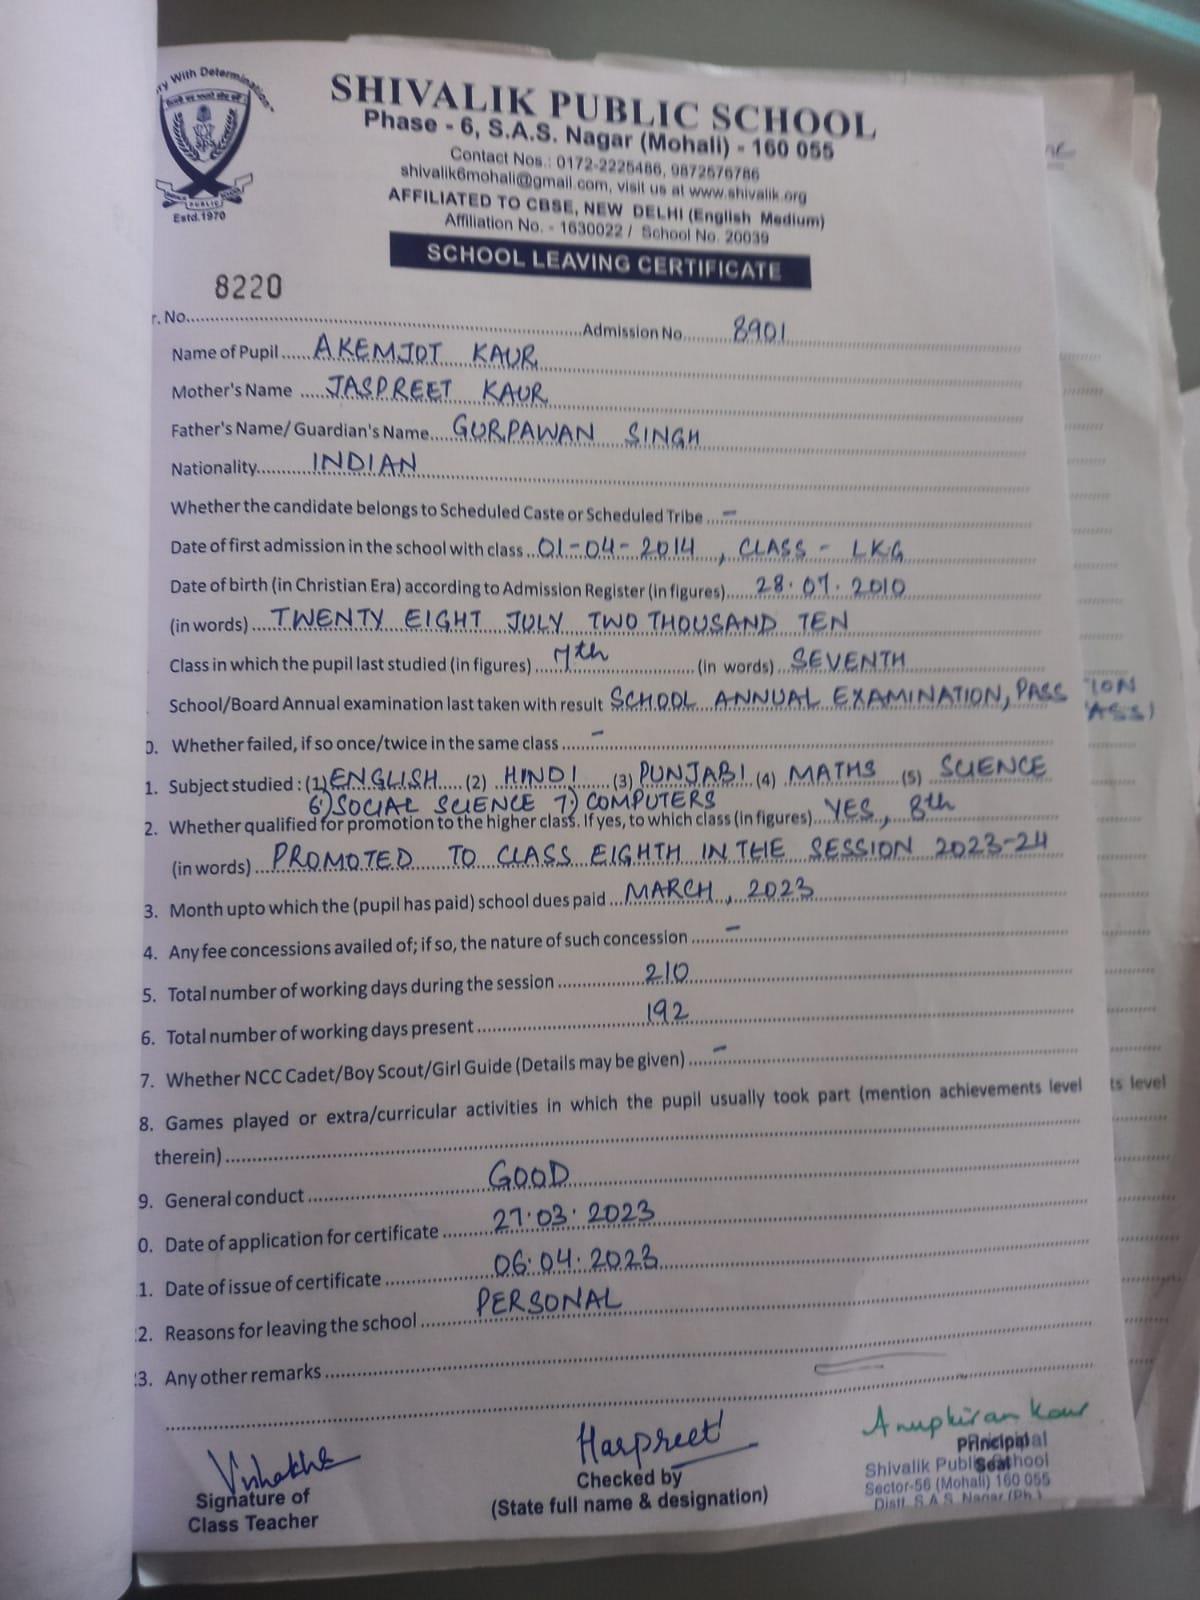 ry With Determination
Estd.1970
SHIVALIK PUBLIC SCHOOL
Phase - 6, S.A.S. Nagar (Mohali) - 160 055
Contact Nos.: 0172-2225486, 9872576786
shivalik6mohali@gmail.com, visit us at www.shivalik.org
AFFILIATED TO CBSE, NEW DELHI (English Medium)
Affiliation No. - 1630022 / School No. 20039
SCHOOL LEAVING CERTIFICATE
8220
r. No. Admission No. 8901
Name of Pupil AKEMJOT KAUR
Mother's Name JASPREET KAUR
Father's Name/ Guardian's Name GURPAWAN SINGH
Nationality INDIAN
Whether the candidate belongs to Scheduled Caste or Scheduled Tribe -
Date of first admission in the school with class 01-04-2014, CLASS - LKG
Date of birth (in Christian Era) according to Admission Register (in figures) 28.07.2010
(in words) TWENTY EIGHT JULY TWO THOUSAND TEN
Class in which the pupil last studied (in figures) 7th (in words) SEVENTH
School/Board Annual examination last taken with result SCHOOL ANNUAL EXAMINATION, PASS
0. Whether failed, if so once/twice in the same class -
1. Subject studied : (1) ENGLISH (2) HINDI (3) PUNJABI (4) MATHS (5) SCIENCE
6) SOCIAL SCIENCE 7) COMPUTERS
2. Whether qualified for promotion to the higher class. If yes, to which class (in figures) YES, 8th
(in words) PROMOTED TO CLASS EIGHTH IN THE SESSION 2023-24
3. Month upto which the (pupil has paid) school dues paid MARCH, 2023
4. Any fee concessions availed of; if so, the nature of such concession -
5. Total number of working days during the session 210
6. Total number of working days present 192
7. Whether NCC Cadet/Boy Scout/Girl Guide (Details may be given) -
8. Games played or extra/curricular activities in which the pupil usually took part (mention achievements level
therein)
9. General conduct GOOD
0. Date of application for certificate 27.03.2023
1. Date of issue of certificate 06.04.2023
2. Reasons for leaving the school PERSONAL
3. Any other remarks
Vishakha
Signature of
Class Teacher
Harpreet
Checked by
(State full name & designation)
Anupkiran Kaur
Principal
Principal
Seal
Shivalik Public School
Sector-56 (Mohali) 160 055
Distt. S.A.S. Nagar (Pb.)
TION
PASS)
ts level